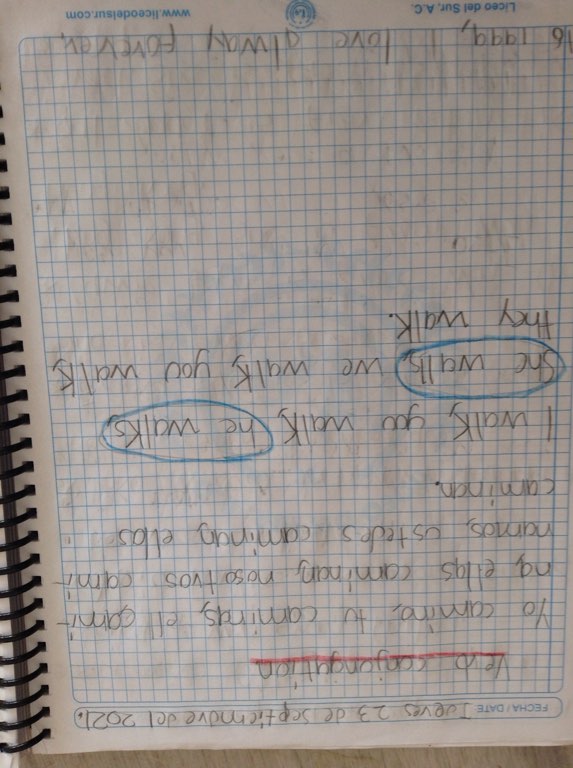 FECHA/DATE Jueves 23 de septiemdre del 2021.
Verb conjungation
Yo camino, tu caminas, ell cami-
na, ellas caminan, nosotros cami-
namos, ustedes caminan, ellos
caminan.
I walk, you walk, he walks,
She walks, we walk, you walk,
they walk.
1999, I love alway forever,
Liceo del Sur, A.C. www.liceodelsur.com